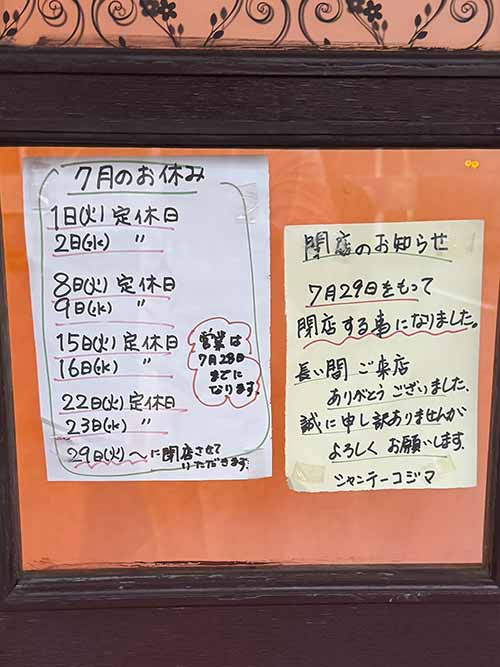 7月のお休み
1日(火)定休日
2日(水) 〃
8日(火)定休日
9日(水) 〃
15日(火)定休日
16日(水) 〃
22日(火)定休日
23日(水) 〃
29日(火)〜に閉店させて
いただきます。
営業は
7月28日
までに
なります。
閉店のお知らせ
7月29日をもって
閉店する事になりました。
長い間ご来店
ありがとうございました。
誠に申し訳ありませんが
よろしくお願いします。
シャンテーコジマ